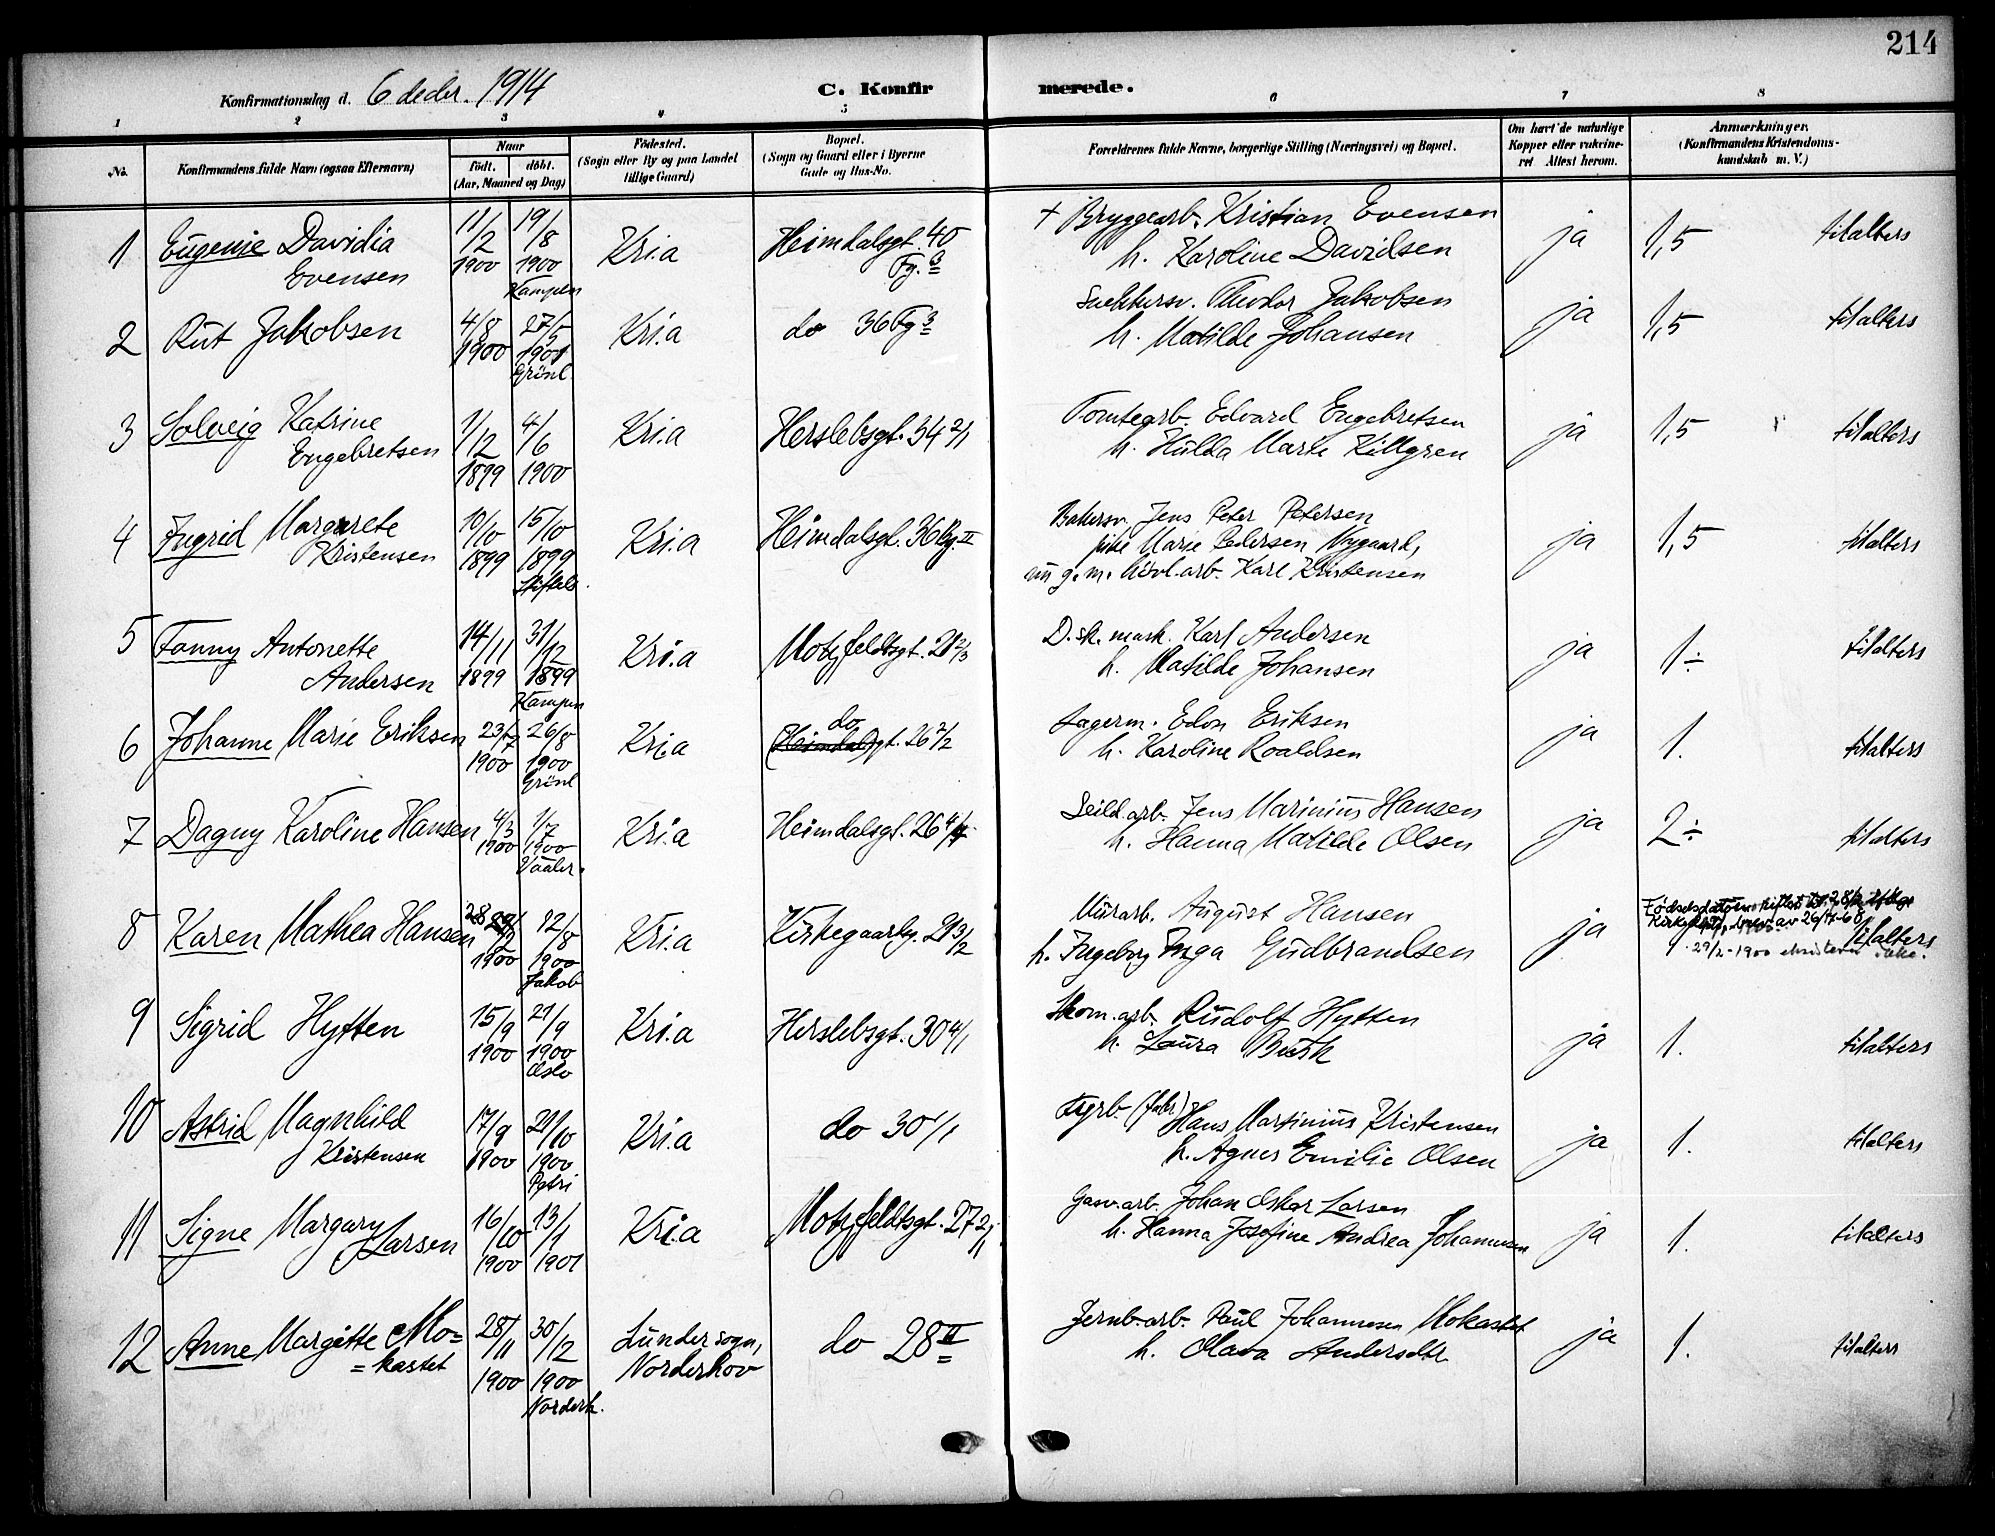 214
Konfirmationsdag d. 6 decbr. 1914 C. Konfirmerede.
1 2 3 4 5 6 7 8
No. Konfirmandens fulde Navn (ogsaa Efternavn) Naar født. døbt. (Aar, Maaned og Dag) Fødested. (Sogn eller By og paa Landet tillige Gaard) Bopæl. (Sogn og Gaard eller i Byerne Gade og Hus-No. Forældrenes fulde Navne, borgerlige Stilling (Næringsvei) og Bopæl. Om havt de naturlige Kopper eller vakcineret Attest herom. Anmærkninger. (Konfirmandens Kristendomskundskab m. V.)
1 Eugenie Davidia 11/2 19/8 Kr.a Heimdalsgt. 40 + Bryggearb. Kristian Evensen ja 1,5 til alters
Evensen 1900 1900 Fg. 3 h. Karoline Davidsen
Kampen
2 Rut Jakobsen 4/8 27/5 Kr.a do 36 Fg 3 Theodor Jakobsen ja 1,5 til alters
1900 1901 h. Matilde Johansen
Grönl.
3 Solveig Katrine 1/12 4/6 Kr.a Herslebsgt. 34 2/1 Tomtearb. Edvard Engebretsen ja 1,5 til alters
Engebretsen 1899 1900 h. Hulda Marie Killgren
4 Ingrid Margrete 10/10 15/10 Kr.a Heimdalsgt. 36 Bg. II Bakersv. Jens Peter Petersen ja 1,5 til alters
Kristensen 1899 1899 pike Marie Pedersen Nygaard,
nu g. m. hövl.arb. Karl Kristensen
5 Fanny Antonette 14/11 31/12 Kr.a Motzfeldtsgt. 21 2/3 D.sk. mask. Karl Andersen ja 1÷ til alters
Andersen 1899 1899 h. Matilde Johansen
Kampen
6 Johanne Marie Eriksen 23/7 26/8 Kr.a do Heimdalsgt. 26 2/2 Lagerm. Edon Eriksen ja 1. til alters
1900 1900 h. Karoline Roaldsen
Grönl
7 Dagny Karoline Hansen 4/3 1/7 Kr.a Heimdalsgt. 26 4/4 Seild.arb. Jens Marinius Hansen ja 2÷ til alters
1900 1900 h. Hanna Matilde Olsen
Vaaler.
8 Karen Mathea Hansen 28 29/2 12/8 Kr.a Kirkegaardsg. 21 3/2 Murarb. August Hansen ja til alters
1900 1900 h. Ingeborg Inga Gudbrandsen
Jakob 29/2-1900 eksisterer ikke.
9 Sigrid Hytten 15/9 21/9 Kr.a Herslebsgt. 30 4/1 Skom.arb. Rudolf Hytten ja 1. til alters
1900 1900 h. Laura Busk
Oslo
10 Astrid Magnhild 17/9 21/10 Kr.a do 30 1/1 Fyrb. (fabr) Hans Martinius Kristensen ja 1. til alters
Kristensen 1900 1900 h. Agnes Emilie Olsen
Petri
11 Signe Margary 16/10 13/1 Kr.a Motzfeldtsgt. 27 2/11 Gasv.arb. Johan Oskar Larsen ja 1. til alters
Larsen 1900 1901 h. Hanna Josefine Andrea Johannesen
12 Anne Margitte Mo= 28/11 30/12 Lunder sogn, do 28 II Jernb.arb. Paul Johannesen Mokastet ja 1. til alters
=kastet 1900 1900 Norderhov h. Olava Andersdtr
Norderh.